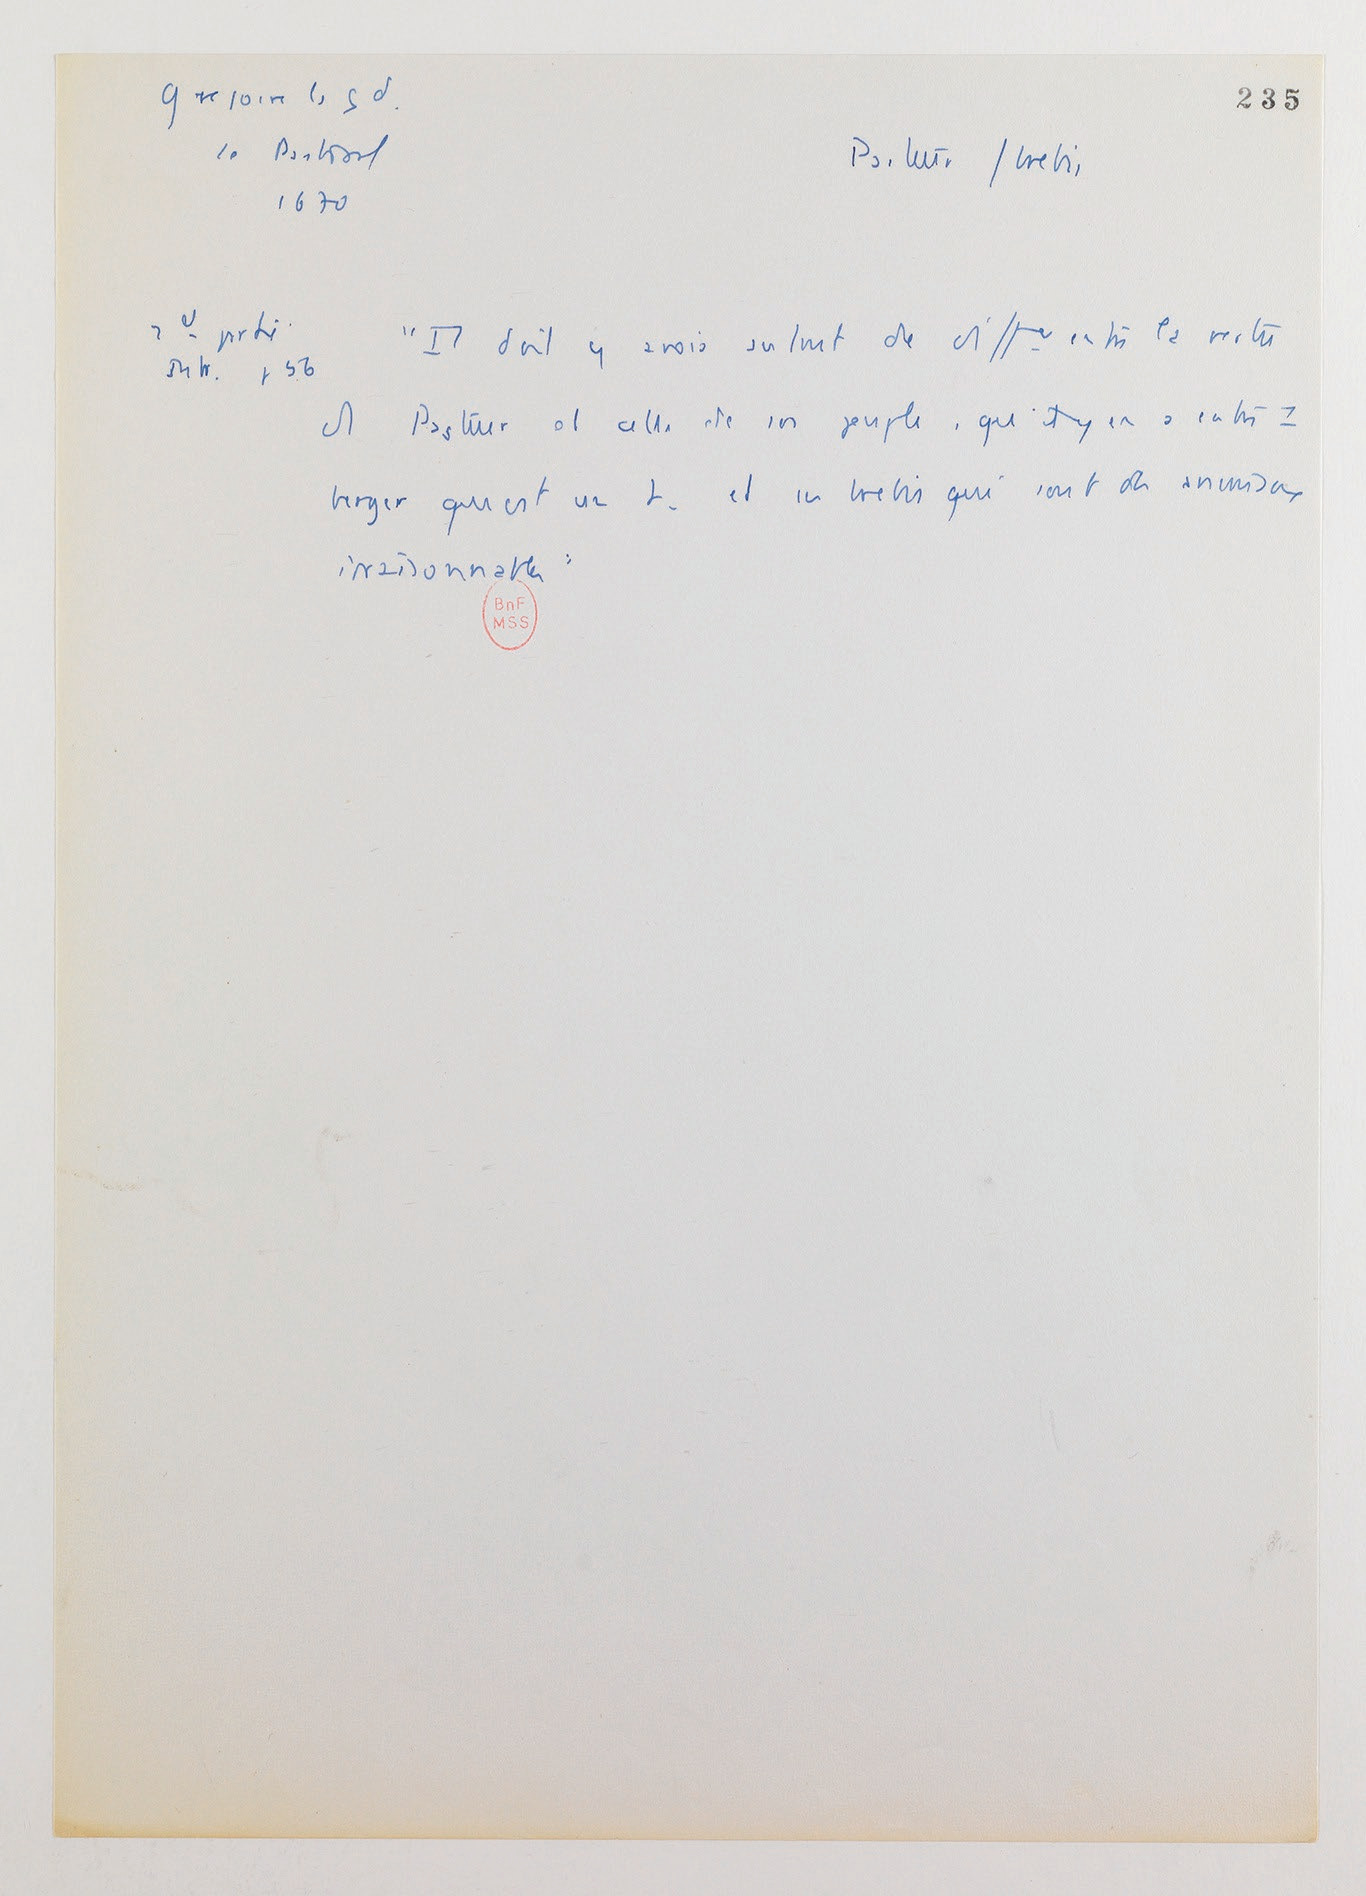 235
Grégoire le gd.
Le Pastoral
1670
Pasteur / brebis
2e partie
Intr. p 56
"Il doit y avoir autant de diffce entre la vertu
du Pasteur et celle de son peuple, qu'il y en a entre 1
berger qui est un h. et ses brebis qui sont des animaux
irraisonnables"
BnF
MSS